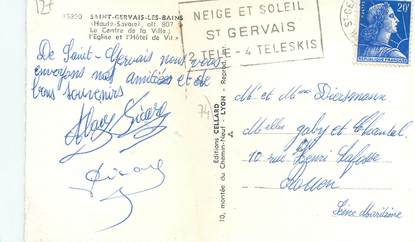 127
15350 SAINT-GERVAIS-LES-BAINS
(Haute-Savoie), alt. 807 m
Le Centre de la Ville ;
l'Eglise et l'Hôtel de Ville
De Saint-Gervais nous vous
envoyons nos amitiés et de
bons souvenirs
74
Editions CELLARD
10, montée du Chemin-Neuf - LYON - Reprod.
NEIGE ET SOLEIL
ST GERVAIS
TÉLÉ - 4 TELESKIS
20F
POSTES
FRANÇAISE
Mr et Mme
Melles Gaby et Chantal
10 rue Henri
Rouen
Seine Maritime